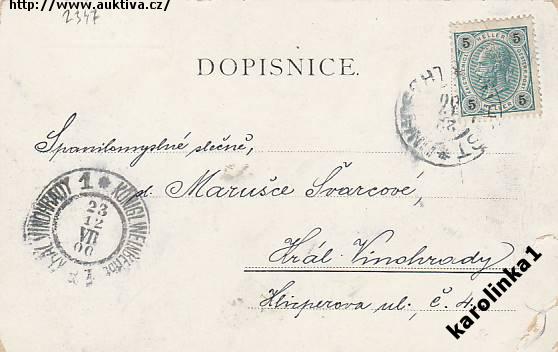 http://www.auktiva.cz/
2347
DOPISNICE.
5 5
HELLER
5 5
Spanilomyslné slečně,
sl. Marušce Švarcové,
Král. Vinohrady
Klicperova ul. č. 4.
KRÁL. VINOHRADY 1 * KÖNIGL. WEINBERGE 1 *
23
12
VII
00
karolinka1